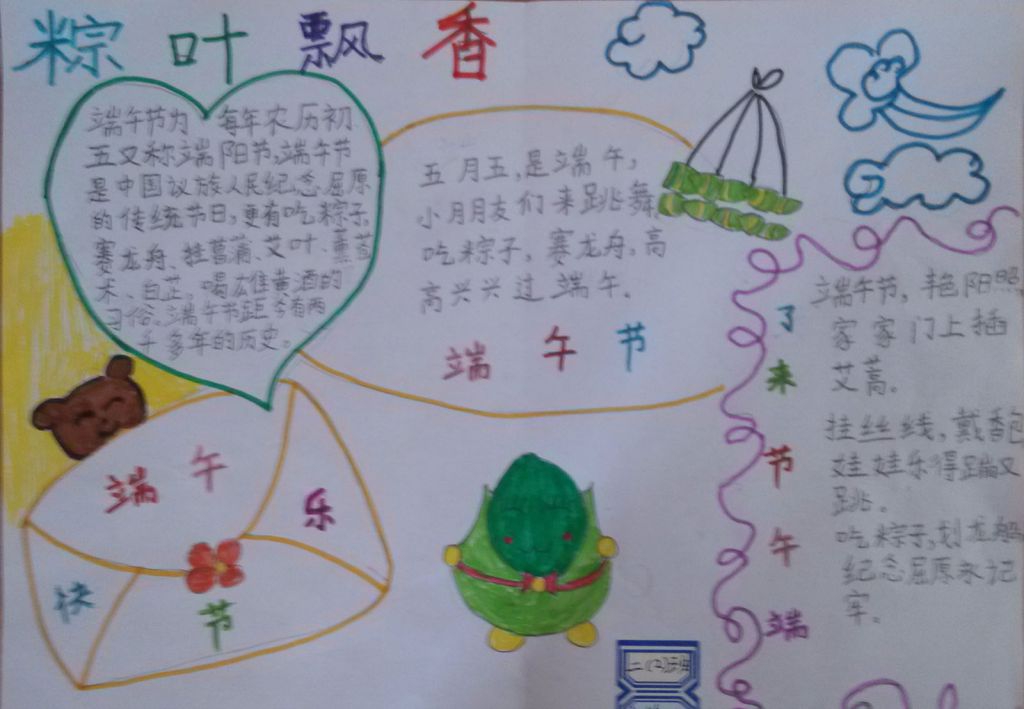 粽 叶 飘 香
端午节为 每年农历初
五又称端阳节,端午节
是中国汉族人民纪念屈原
的传统节日,更有吃粽子,
赛龙舟、挂菖蒲、艾叶、薰苍
术、白芷、喝雄黄酒的
习俗、端午节距今有两
千多年的历史。
五月五,是端午,
小朋友们来跳舞,
吃粽子,赛龙舟,高
高兴兴过端午.
端 午 节
端 午
快 乐
节
了
来
节
午
端
端午节, 艳阳照
家家门上插
艾蒿。
挂丝线,戴香包
娃娃乐得蹦又
跳。
吃粽子,划龙船
纪念屈原永记
牢。
二(2)班